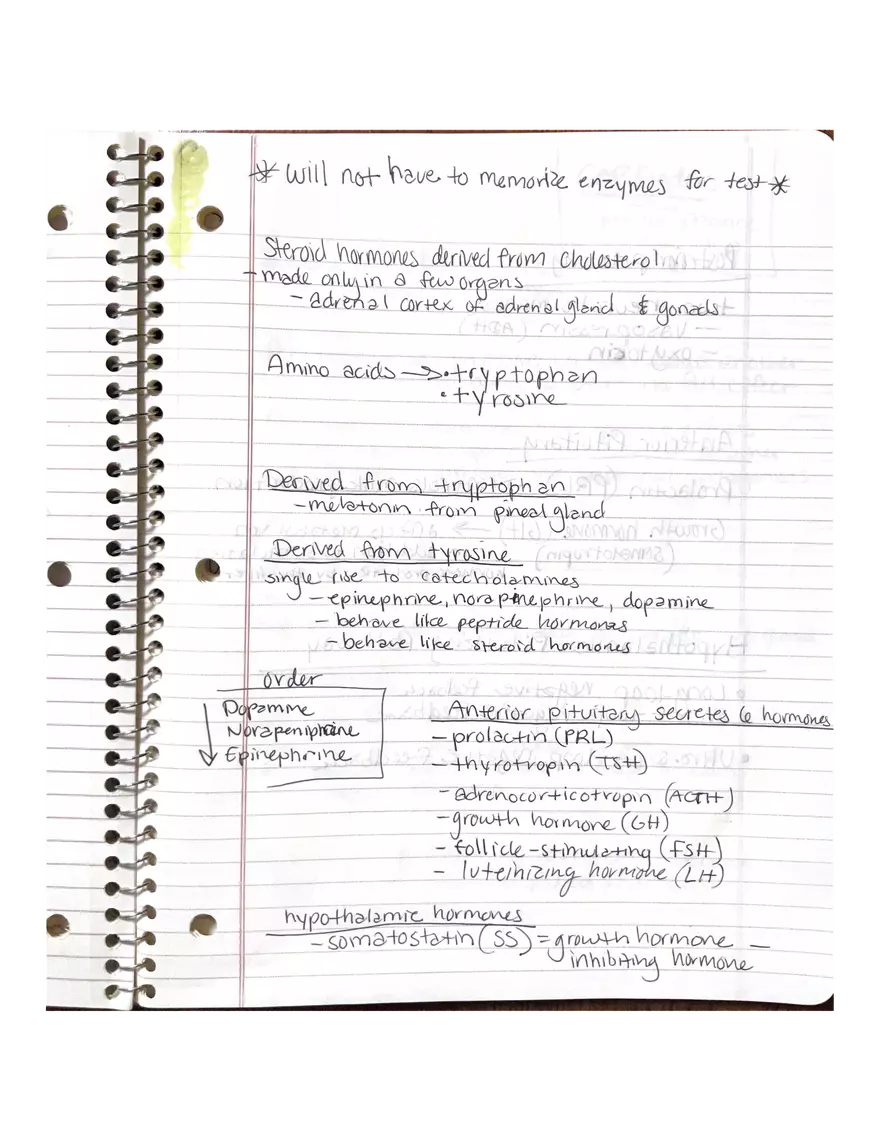 * will not have to memorize enzymes for test *
Steroid hormones derived from cholesterol
- made only in a few organs
- adrenal cortex of adrenal gland & gonads
Amino acids → • tryptophan
• tyrosine
Derived from tryptophan
- melatonin from pineal gland
Derived from tyrosine
single rise to catecholamines
- epinephrine, norapinephrine, dopamine
- behave like peptide hormones
- behave like steroid hormones
order
Dopamine
Norapeniphrine
Epinephrine
Anterior pituitary secretes 6 hormones
- prolactin (PRL)
- thyrotropin (TSH)
- adrenocorticotropin (ACTH)
- growth hormone (GH)
- follicle-stimulating (FSH)
- luteinizing hormone (LH)
hypothalamic hormones
- somatostatin (SS) = growth hormone -
inhibiting hormone